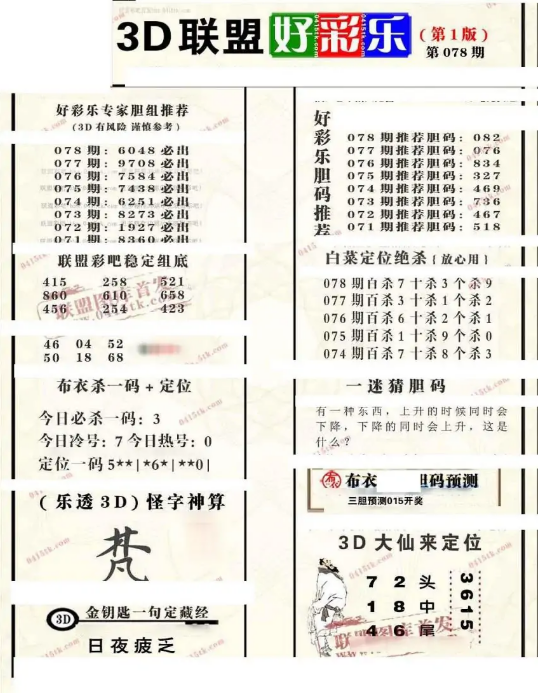 3D联盟好彩乐
(第1版)
第078期
好彩乐专家胆组推荐
(3D有风险 谨慎参考)
078期: 6048必出
077期: 9708必出
076期: 7584必出
075期: 7438必出
074期: 6251必出
073期: 8273必出
072期: 1927必出
071期: 8360必出
联盟彩吧稳定组底
415 258 521
860 610 658
456 254 423
46 04 52
50 18 68
布衣杀一码+定位
今日必杀一码: 3
今日冷号: 7 今日热号: 0
定位一码5**|*6*|**0|
(乐透3D)怪字神算
梵
3D 金钥匙一句定藏经
日夜疲乏
好彩乐胆码推荐
078期推荐胆码: 082
077期推荐胆码: 076
076期推荐胆码: 834
075期推荐胆码: 327
074期推荐胆码: 469
073期推荐胆码: 736
072期推荐胆码: 467
071期推荐胆码: 518
白菜定位绝杀(放心用)
078期百杀7十杀3个杀9
077期百杀3十杀1个杀2
076期百杀6十杀2个杀1
075期百杀1十杀9个杀0
074期百杀7十杀8个杀3
一迷猜胆码
有一种东西, 上升的时候同时会
下降, 下降的同时会上升, 这是
什么?
布衣 胆码预测
三胆预测015开奖
3D大仙来定位
7 2 头
1 8 中
4 6 尾
3615